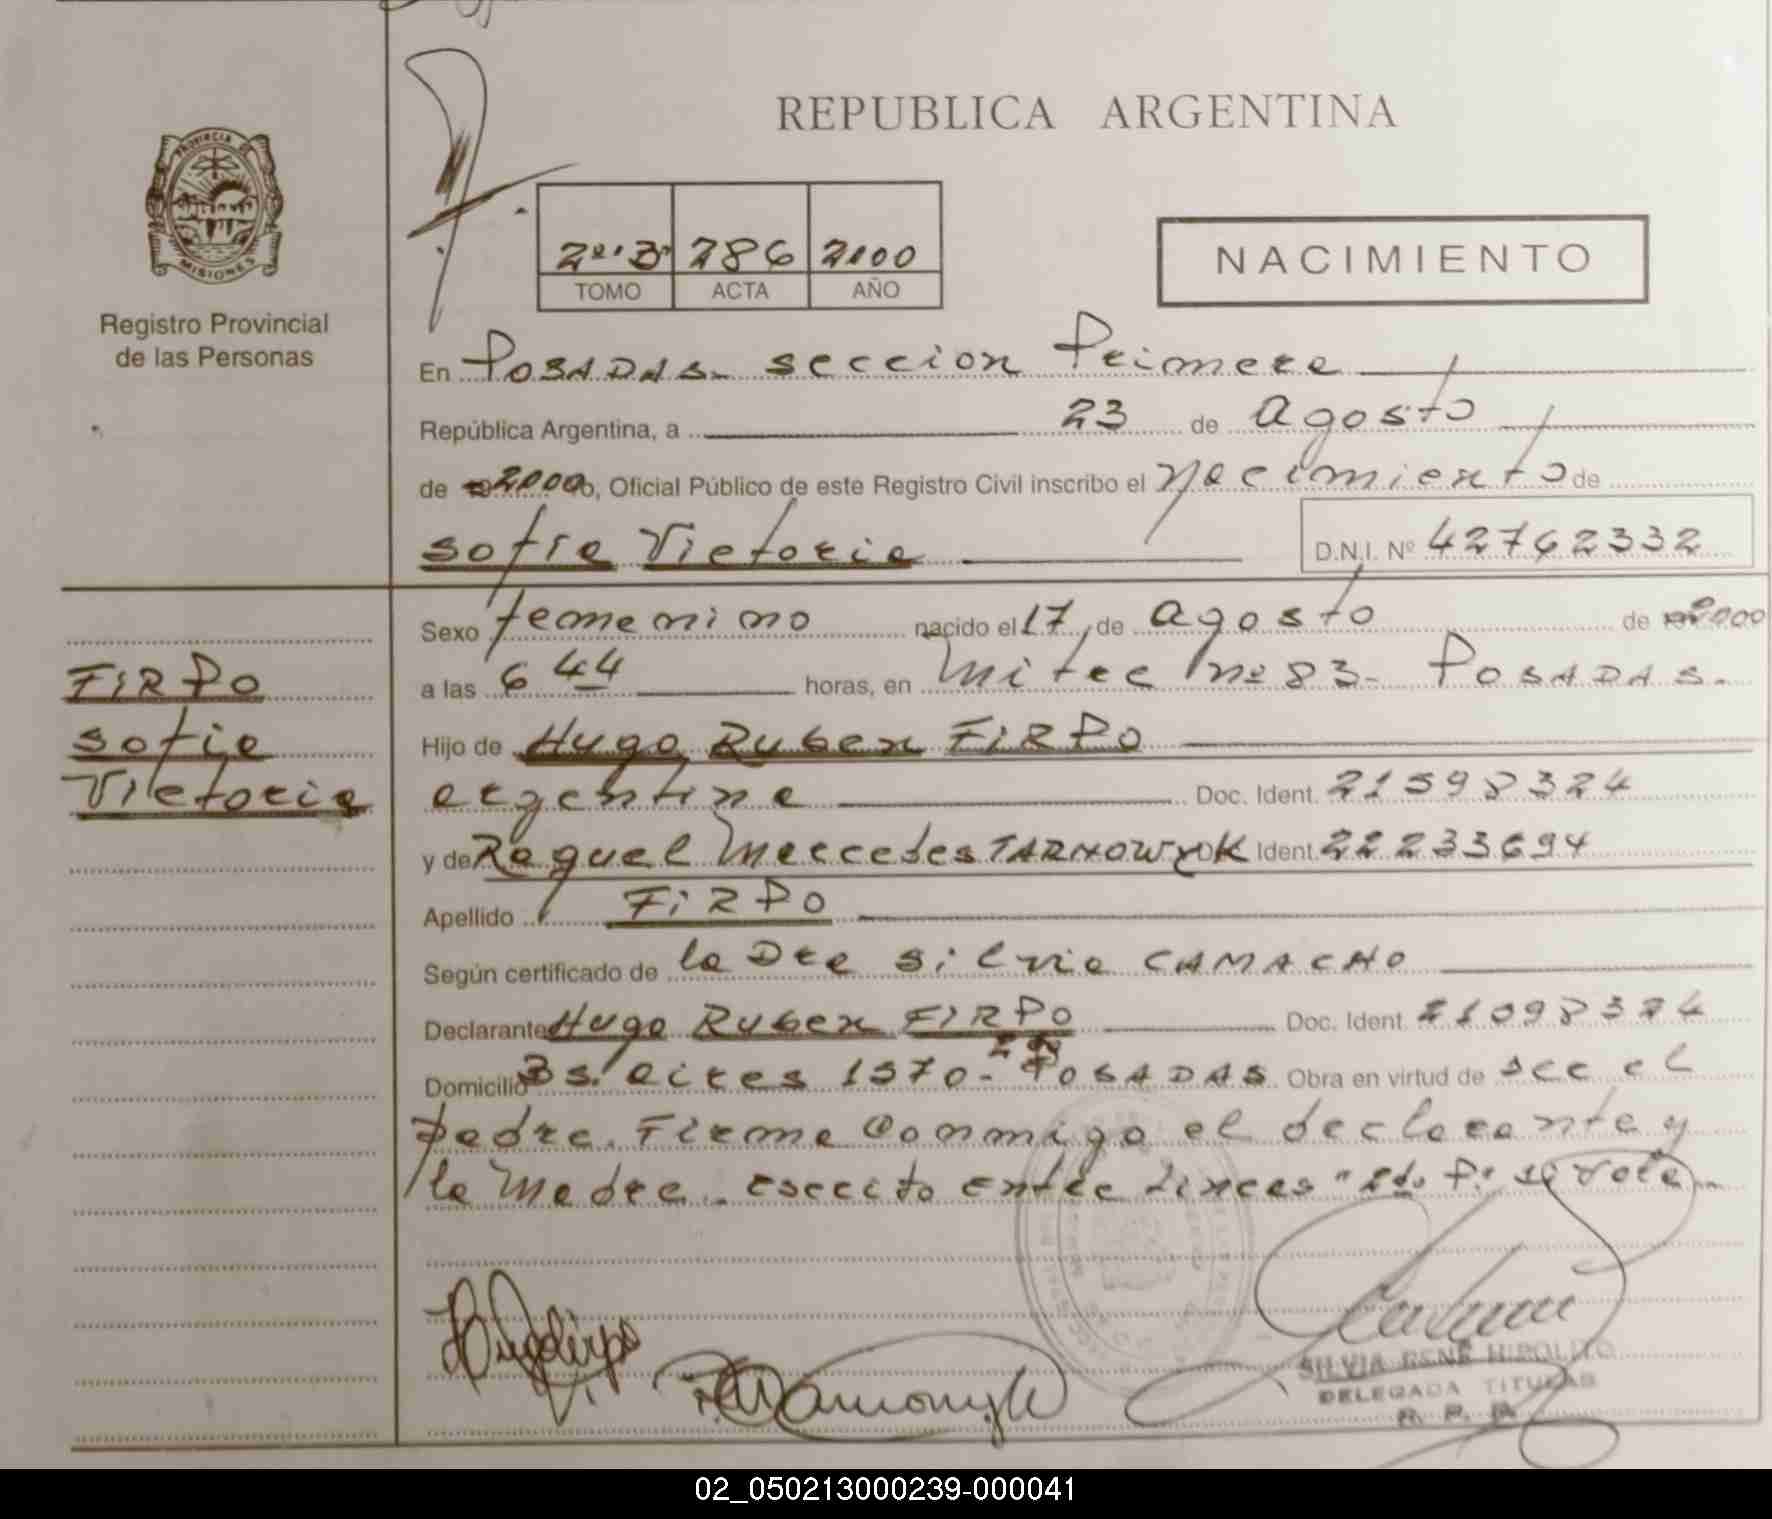 REPUBLICA ARGENTINA
PROVINCIA DE
MISIONES
Registro Provincial
de las Personas
2º.B 286 2000
TOMO ACTA AÑO
NACIMIENTO
En Posadas. seccion Primera
República Argentina, a 23 de agosto
de 2000, Oficial Público de este Registro Civil inscribo el nacimiento de
sofia Victoria D.N.I. Nº 42762332
Sexo femenino nacido el 17 de agosto de 2000
a las 6 44 horas, en mitre nº 83- Posadas.
FIRPO
sofia
Victoria
Hijo de Hugo Ruben FIRPO
argentina Doc. Ident. 21398324
y de Raquel Mercedes TARNOWYK Ident. 22233694
Apellido FIRPO
Según certificado de la Dra silvia CAMACHO
Declarante Hugo Ruben FIRPO Doc. Ident. 21098324
Domicilio Bs. aires 1370- Posadas Obra en virtud de ser el
padre. Firma conmigo el declarante y
la madre. escrito entre lineas "2do P." si vale.
SILVIA RENE HIPOLITO
DELEGADA TITULAR
R. P. P.
02_050213000239-000041